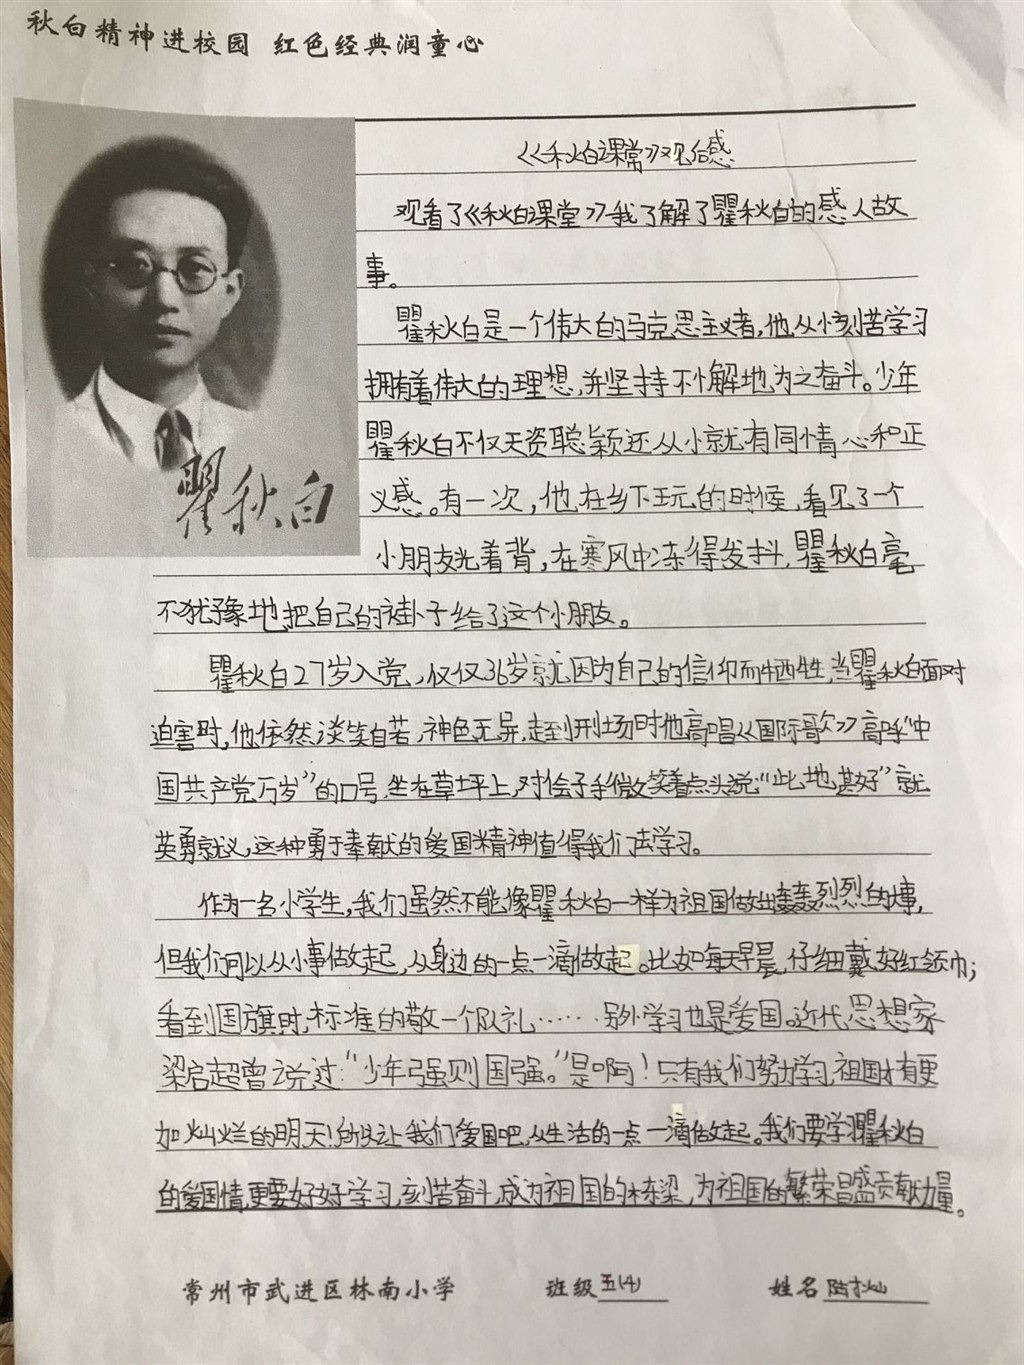 秋白精神进校园 红色经典润童心
《秋白课堂》观后感
观看了《秋白课堂》我了解了瞿秋白的感人故
事。
瞿秋白是一个伟大的马克思主义者,他从小刻苦学习
拥有着伟大的理想,并坚持不懈地为之奋斗。少年
瞿秋白不仅天资聪颖还从小就有同情心和正
义感。有一次,他在乡下玩的时候,看见了一个
小朋友光着背,在寒风中冻得发抖,瞿秋白毫
瞿秋白
不犹豫地把自己的褂子给了这个小朋友。
瞿秋白27岁入党,仅仅36岁就因为自己的信仰而牺牲,当瞿秋白面对
迫害时,他依然谈笑自若,神色无异,走到刑场时他高唱《国际歌》高呼“中
国共产党万岁”的口号,坐在草坪上,对侩子手微笑着点头说:“此地甚好”就
英勇就义,这种勇于奉献的爱国精神值得我们去学习。
作为一名小学生,我们虽然不能像瞿秋白一样为祖国做出轰轰烈烈的大事,
但我们可以从小事做起,从身边的一点一滴做起。比如每天早晨,仔细戴好红领巾;
看到国旗时,标准的敬一个队礼……另外学习也是爱国。近代思想家
梁启超曾说过:“少年强则国强。”是啊!只有我们努力学习,祖国才有更
加灿烂的明天!所以让我们爱国吧,从生活的一点一滴做起。我们要学习瞿秋白
的爱国情,更要好好学习,刻苦奋斗,成为祖国的栋梁,为祖国的繁荣昌盛贡献力量。
常州市武进区林南小学 班级 五(4) 姓名 陆才灿